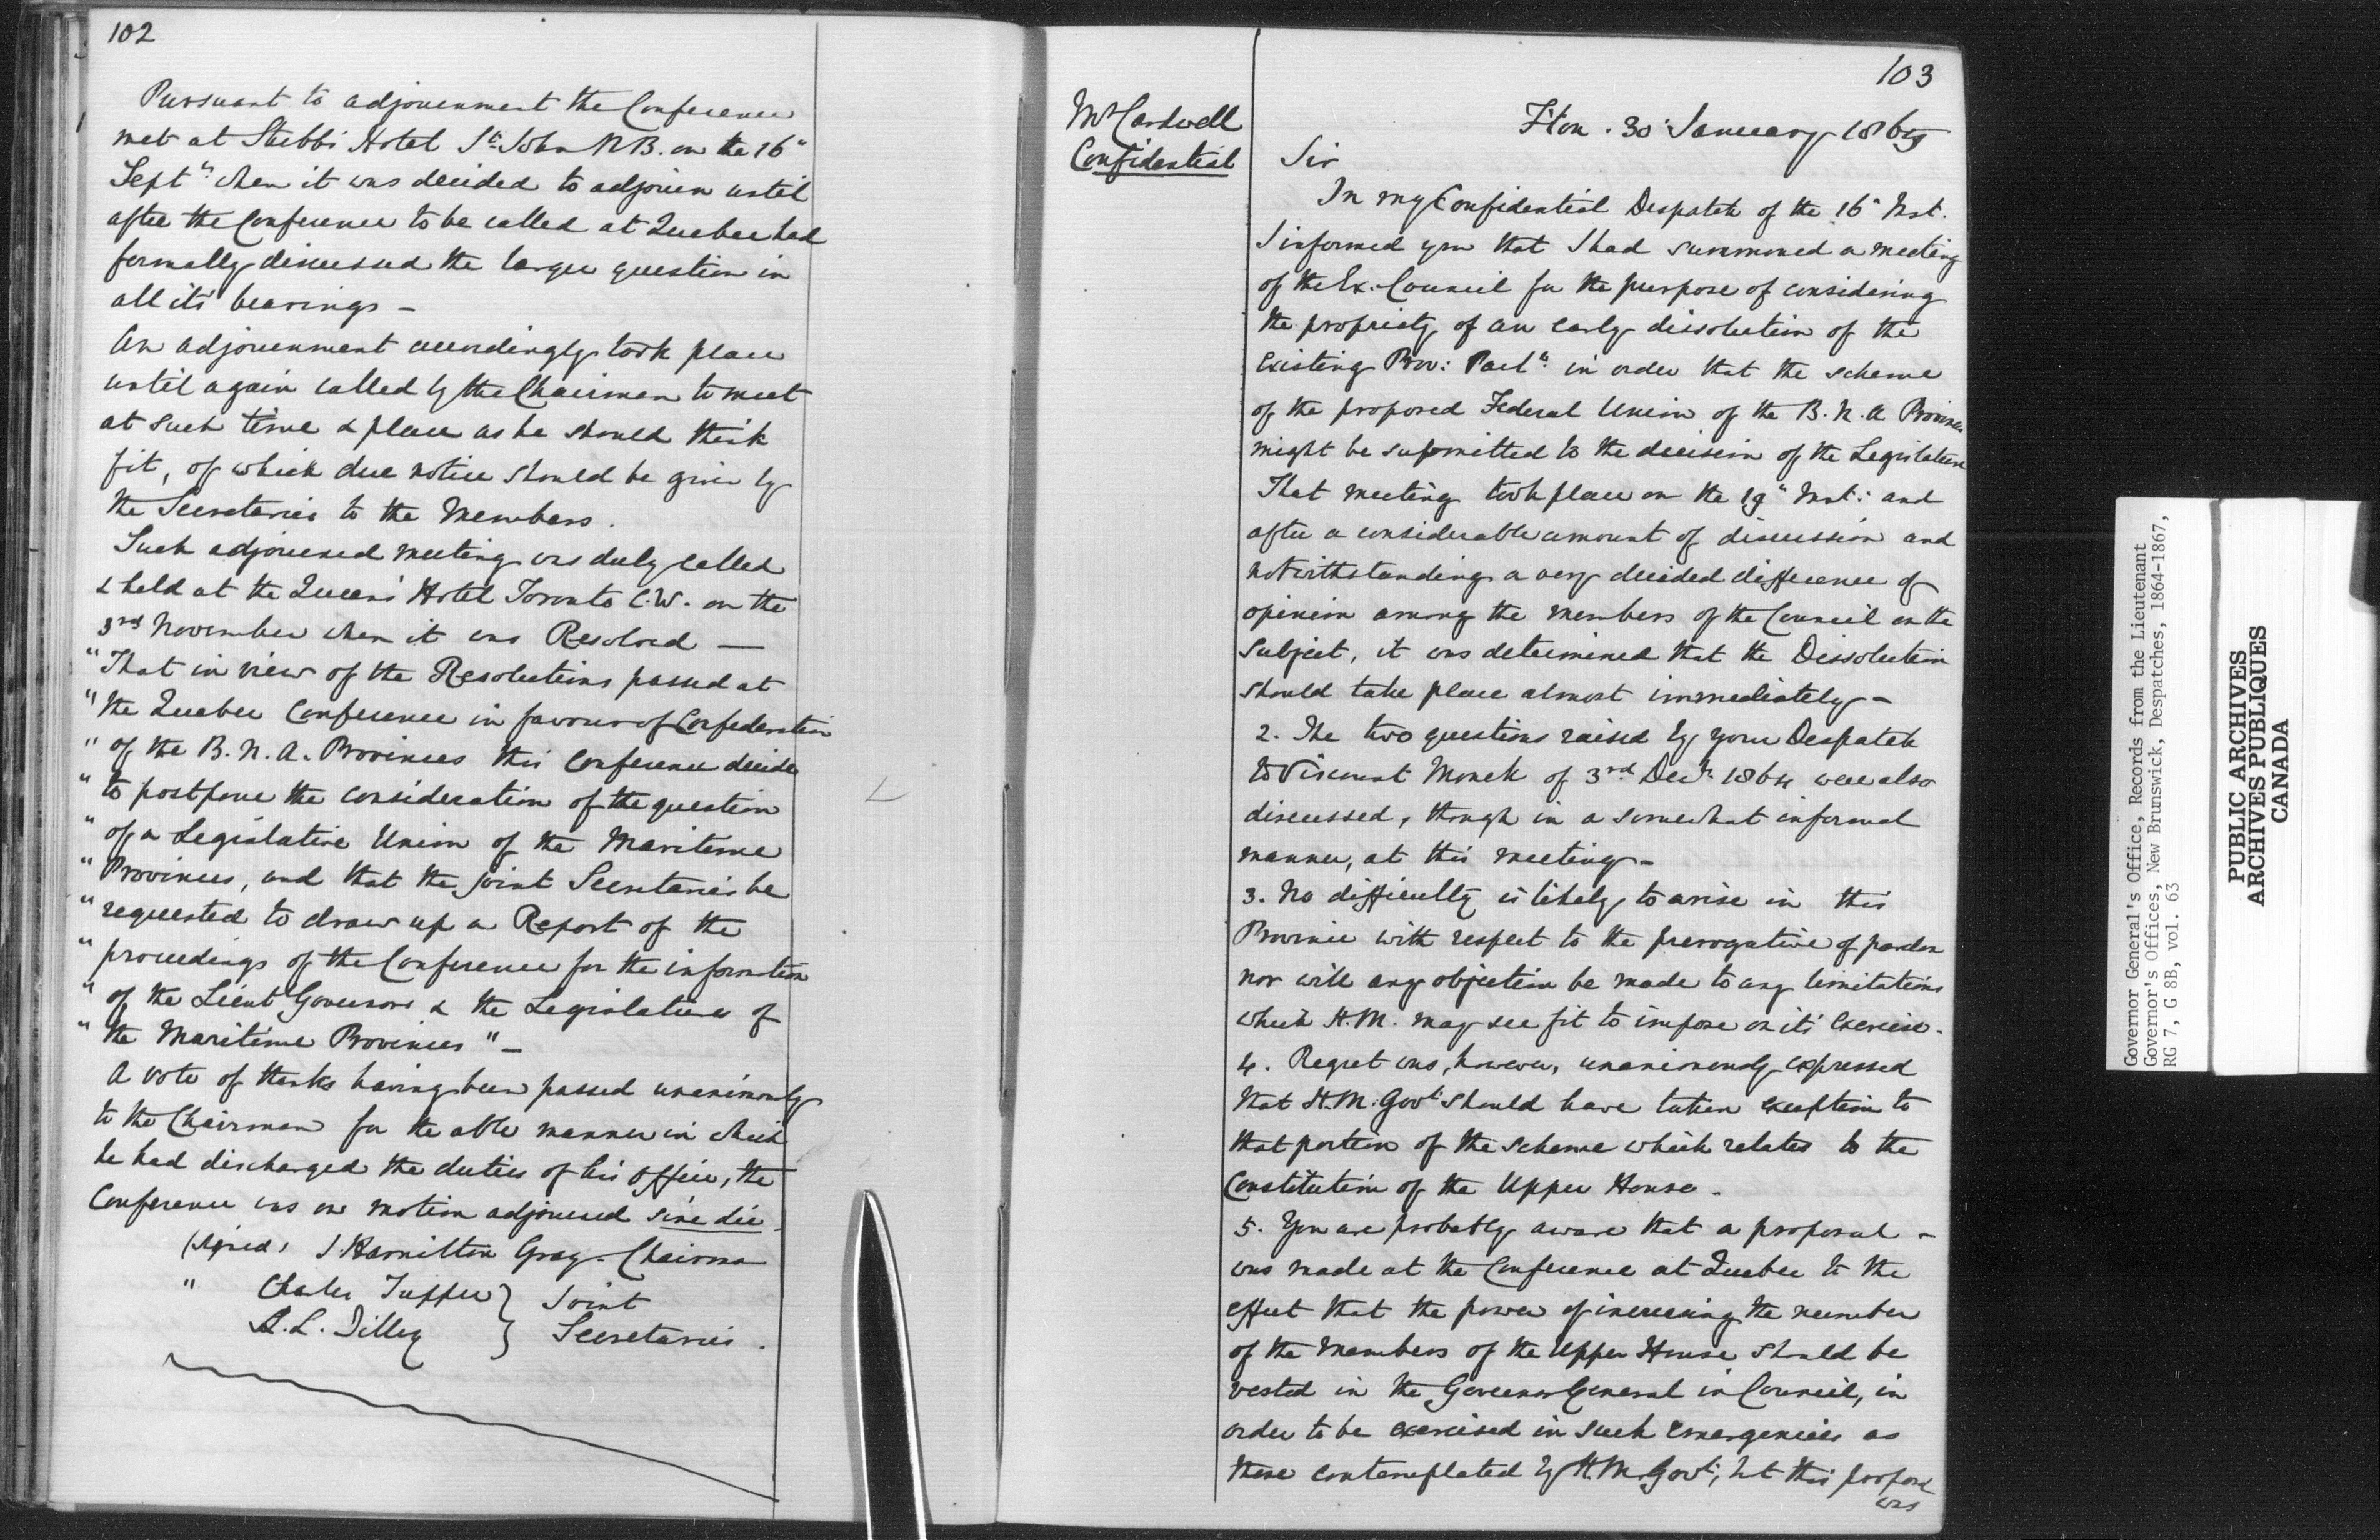 102
Pursuant to adjournment the Conference
met at Stubbs' Hotel St. John N.B. on the 16"
Septr. when it was decided to adjourn until
after the Conference to be called at Quebec had
formally discussed the larger question in
all its' bearings -
An adjournment accordingly took place
until again called by the Chairman to meet
at such time & place as he should think
fit, of which due notice should be given by
the Secretaries to the Members.
Such adjourned meeting was duly called
& held at the Queen's Hotel Toronto C.W. on the
3rd November when it was Resolved —
"That in view of the Resolutions passed at
"the Quebec Conference in favour of Confederation
"of the B.N.A. Provinces this Conference decides
"to postpone the consideration of the question
"of a Legislative Union of the Maritime
"Provinces, and that the joint Secretaries be
"requested to draw up a Report of the
"proceedings of the Conference for the information
"of the Lieut Governors & the Legislatures of
"the Maritime Provinces" -
A vote of thanks having been passed unanimously
to the Chairman for the able manner in which
he had discharged the duties of his office, the
Conference was on motion adjourned sine die.
(signed) J. Hamilton Gray - Chairman
" Charles Tupper } Joint
S. L. Tilley } Secretaries.
103
Mr Cardwell
Confidential
F'ton. 30 January 1865
Sir
In my Confidential Despatch of the 16" Inst.
I informed you that I had summoned a meeting
of the Ex. Council for the purpose of considering
the propriety of an early dissolution of the
existing Prov: Parlt. in order that the scheme
of the proposed Federal Union of the B.N.A Provinces
might be submitted to the decision of the Legislature
That meeting took place on the 19" Inst: and
after a considerable amount of discussion and
notwithstanding a very decided difference of
opinion among the members of the Council on the
subject, it was determined that the Dissolution
should take place almost immediately -
2. The two questions raised by your Despatch
to Viscount Monck of 3rd Decr. 1864 were also
discussed, though in a somewhat informal
manner, at this meeting -
3. No difficulty is likely to arise in this
Province with respect to the prerogative of pardon
nor will any objection be made to any limitations
which H.M. may see fit to impose on its' exercise -
4. Regret was, however, unanimously expressed
that H.M. Govt: should have taken exception to
that portion of the scheme which relates to the
Constitution of the Upper House -
5. You are probably aware that a proposal -
was made at the Conference at Quebec to the
effect that the power of increasing the number
of the Members of the Upper House should be
vested in the Governor General in Council, in
order to be exercised in such emergencies as
those contemplated by H.M. Govt:, but this proposal
was
Governor General's Office, Records from the Lieutenant
Governor's Offices, New Brunswick, Despatches, 1864-1867,
RG 7, G 8B, vol. 63
PUBLIC ARCHIVES
ARCHIVES PUBLIQUES
CANADA